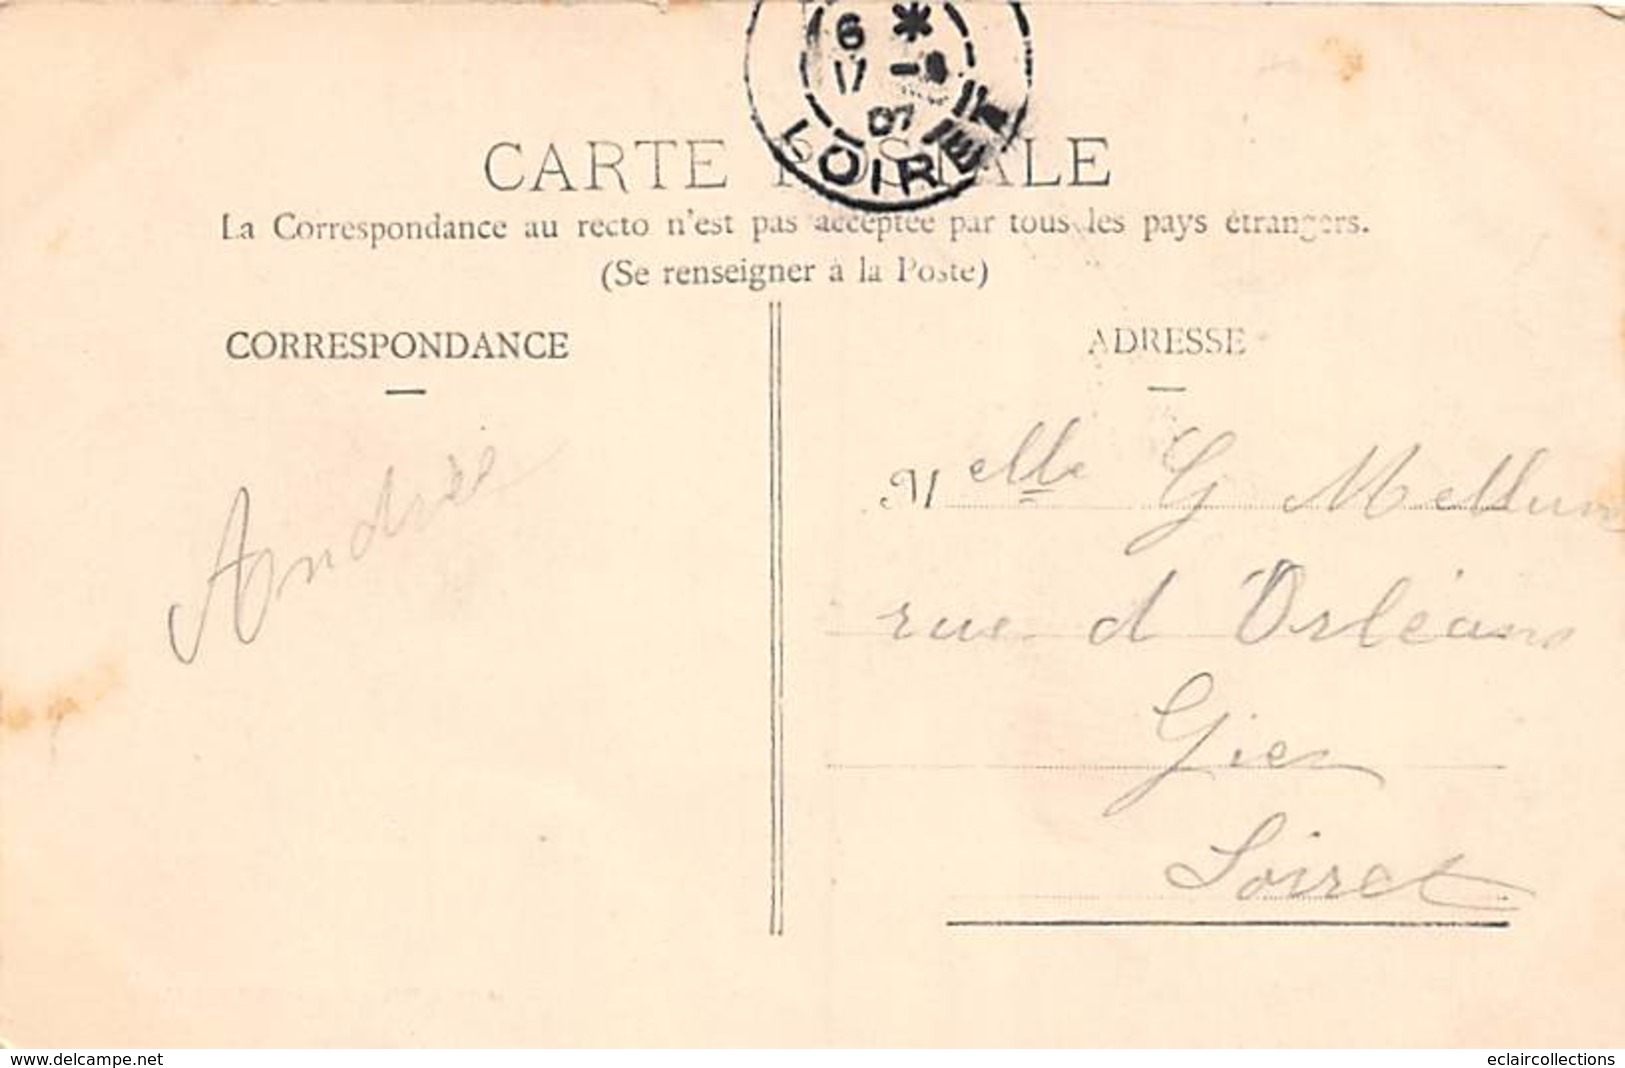 6 *
17 -8
07
LOIRET
CARTE POSTALE
La Correspondance au recto n'est pas acceptée par tous les pays étrangers.
(Se renseigner à la Poste)
CORRESPONDANCE
Andrée
ADRESSE
Melle G Mellum
rue d'Orléans
Gien
Loiret
www.delcampe.net
eclaircollections